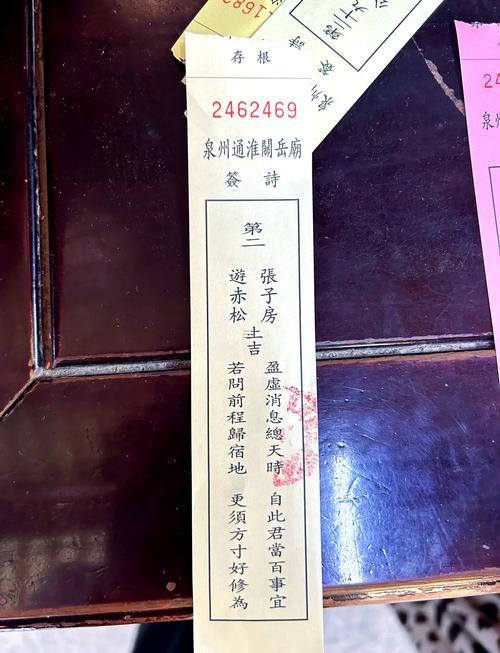 存根
2462469
泉州通淮關岳廟
簽詩
第二
張子房
遊赤松
上吉
盈虛消息總天時 自此君當百事宜
若問前程歸宿地 更須方寸好修為
24
泉州